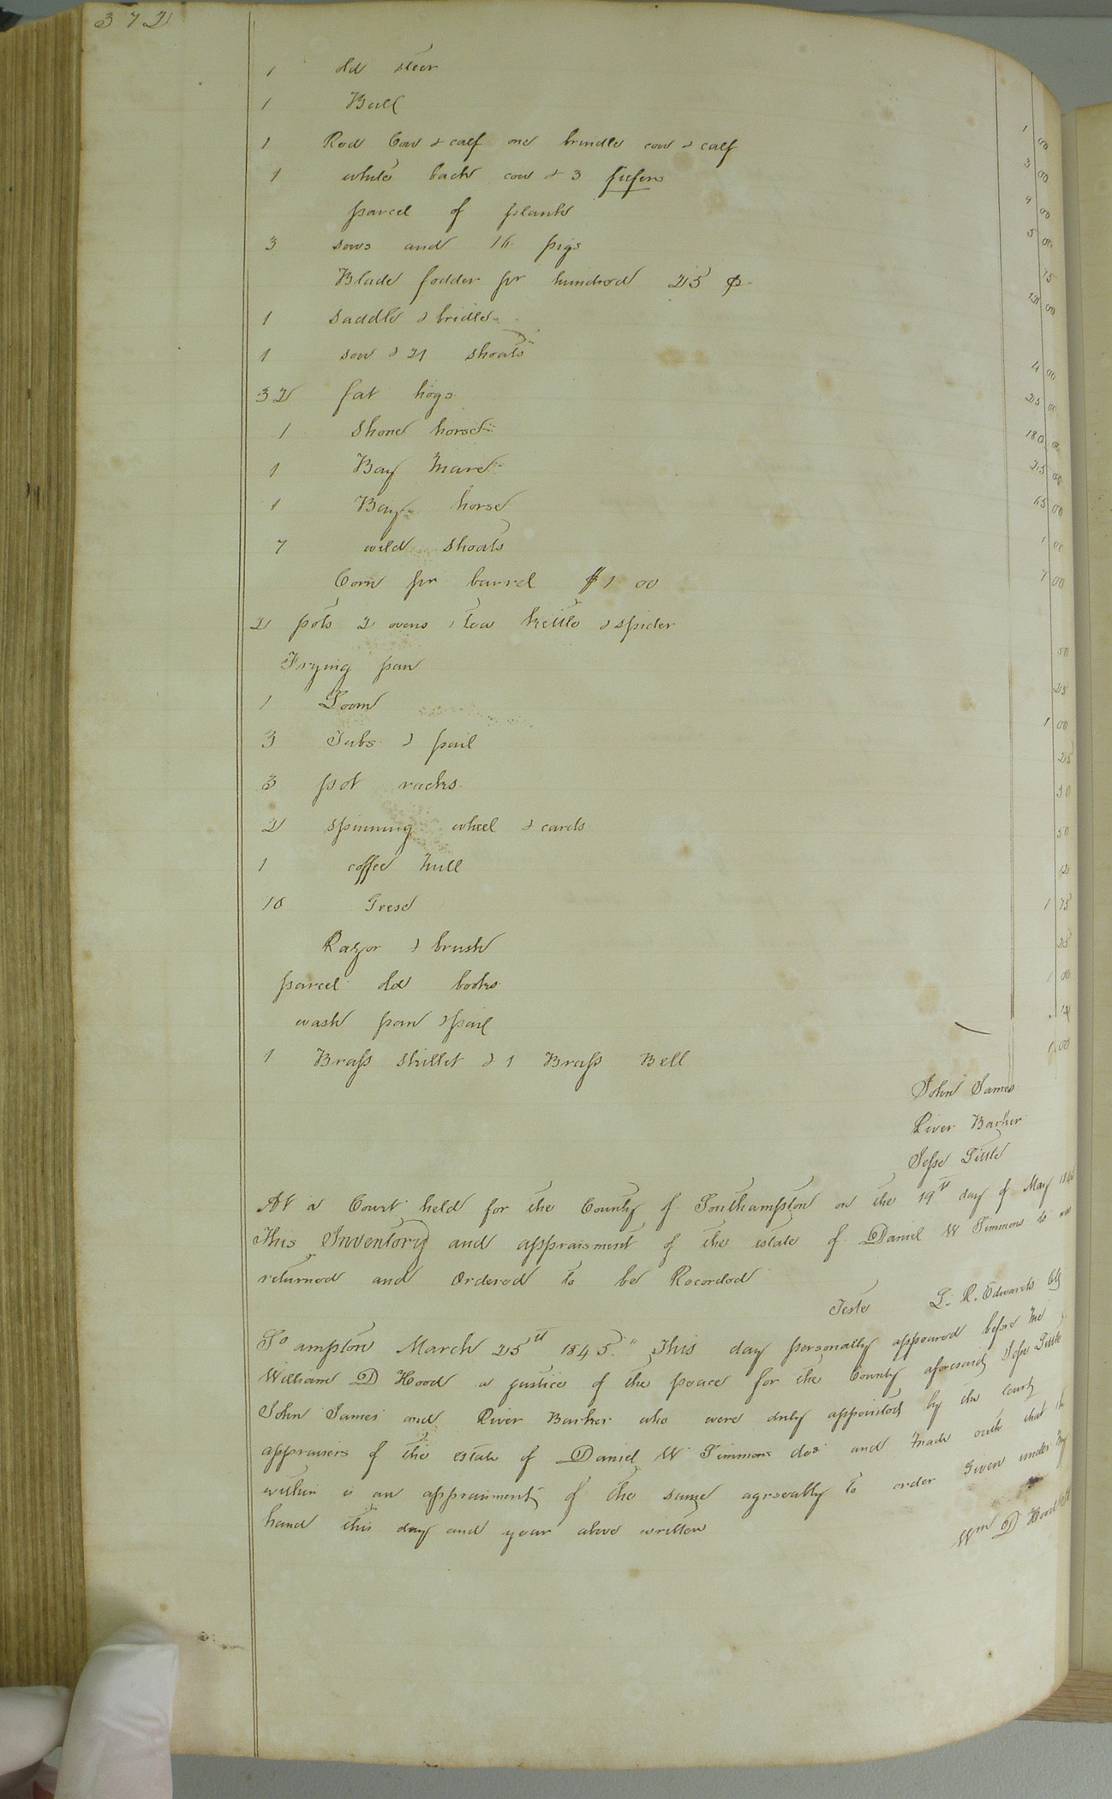 372
1 old steer 1 00
1 Bull 3 00
1 Red Cow & calf one brindle cow & calf 9 00
1 white back cow & 3 5 00
parcel of plank 75
3 sows and 16 pigs 12 00
Blade fodder pr hundred 25 ¢
1 saddle & bridle 4 00
1 sow & 21 shoats 25 00
32 fat hogs 180 00
1 horse 25 00
1 Bay Mare 65 00
1 Bay horse 1 00
7 wild shoats 7 00
Corn pr barrel $1 00
2 pots 2 ovens 1 tea kettle & spider 50
Frying pan 25
1 Loom 1 00
3 Tubs & pail 25
3 pot racks 50
2 spinning wheel & cards 50
1 coffee mill
10 Geese 1 75
Razor & brush 25
parcel old books 1 00
wash pan & pail
1 Brass skillet & 1 Brass Bell 1.00
John James
River Barker
Jesse Little
At a Court held for the County of Southampton on the 19th day of May
This Inventory and appraisment of the estate of Daniel W Simmons dc was
returned and Ordered to be Recorded
Teste L. R. Edwards Clk
So ampton March 25th 1845. This day personally appeared before me
William D Hood a justice of the peace for the County aforesaid Jesse Little
John James and River Barker who were duly appointed by the court
appraisers of the estate of Daniel W Simmons dec and made oath that the
within is an appraisment of the same agreeably to order Given under my
hand this day and year above written
Wm D Hood